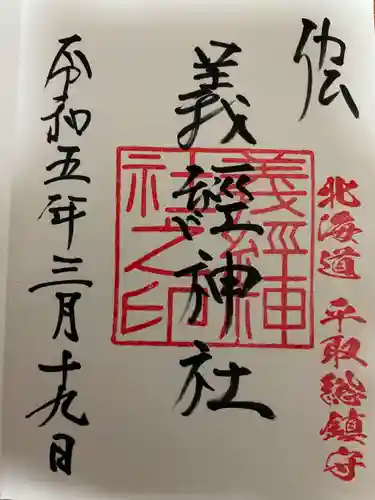 北海道 平取総鎮守
義經神社
義經神
社之印
令和五年三月十九日